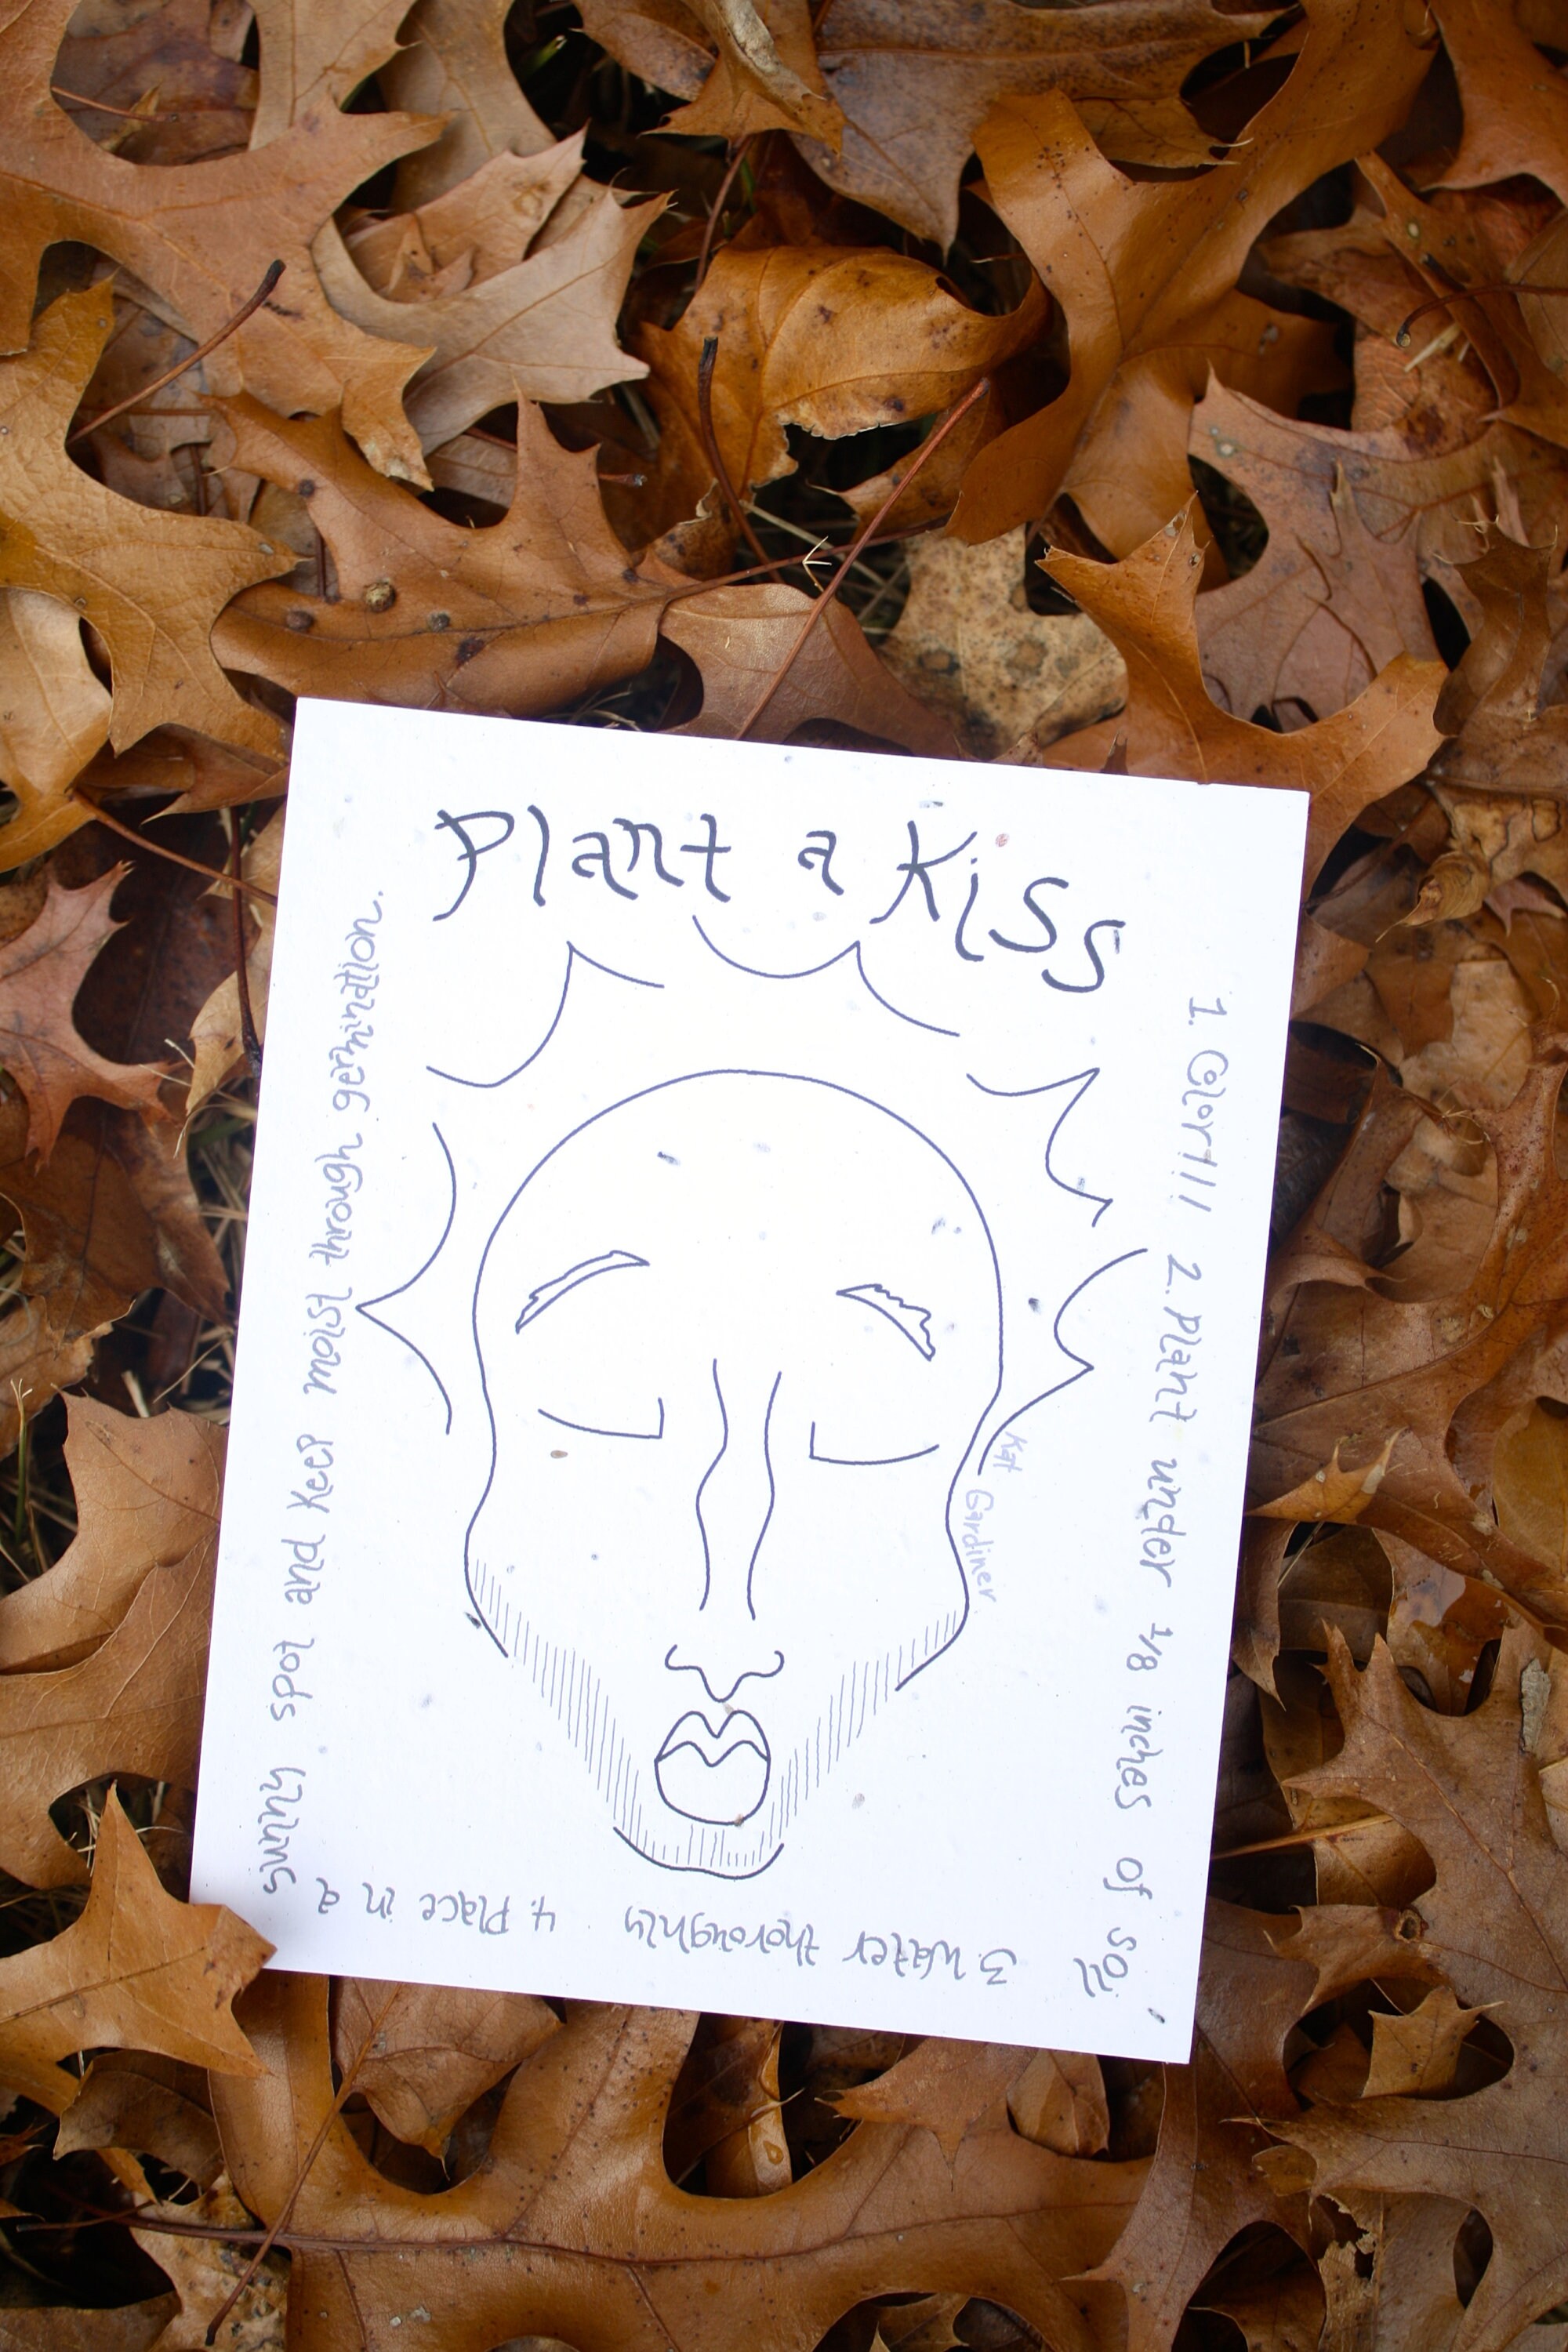 Plant a Kiss
1. Color!!! 2. Plant under 1/8 inches of soil
3. Water thoroughly 4. Place in a
sunny spot and Keep moist through germination.
Kat Gardiner